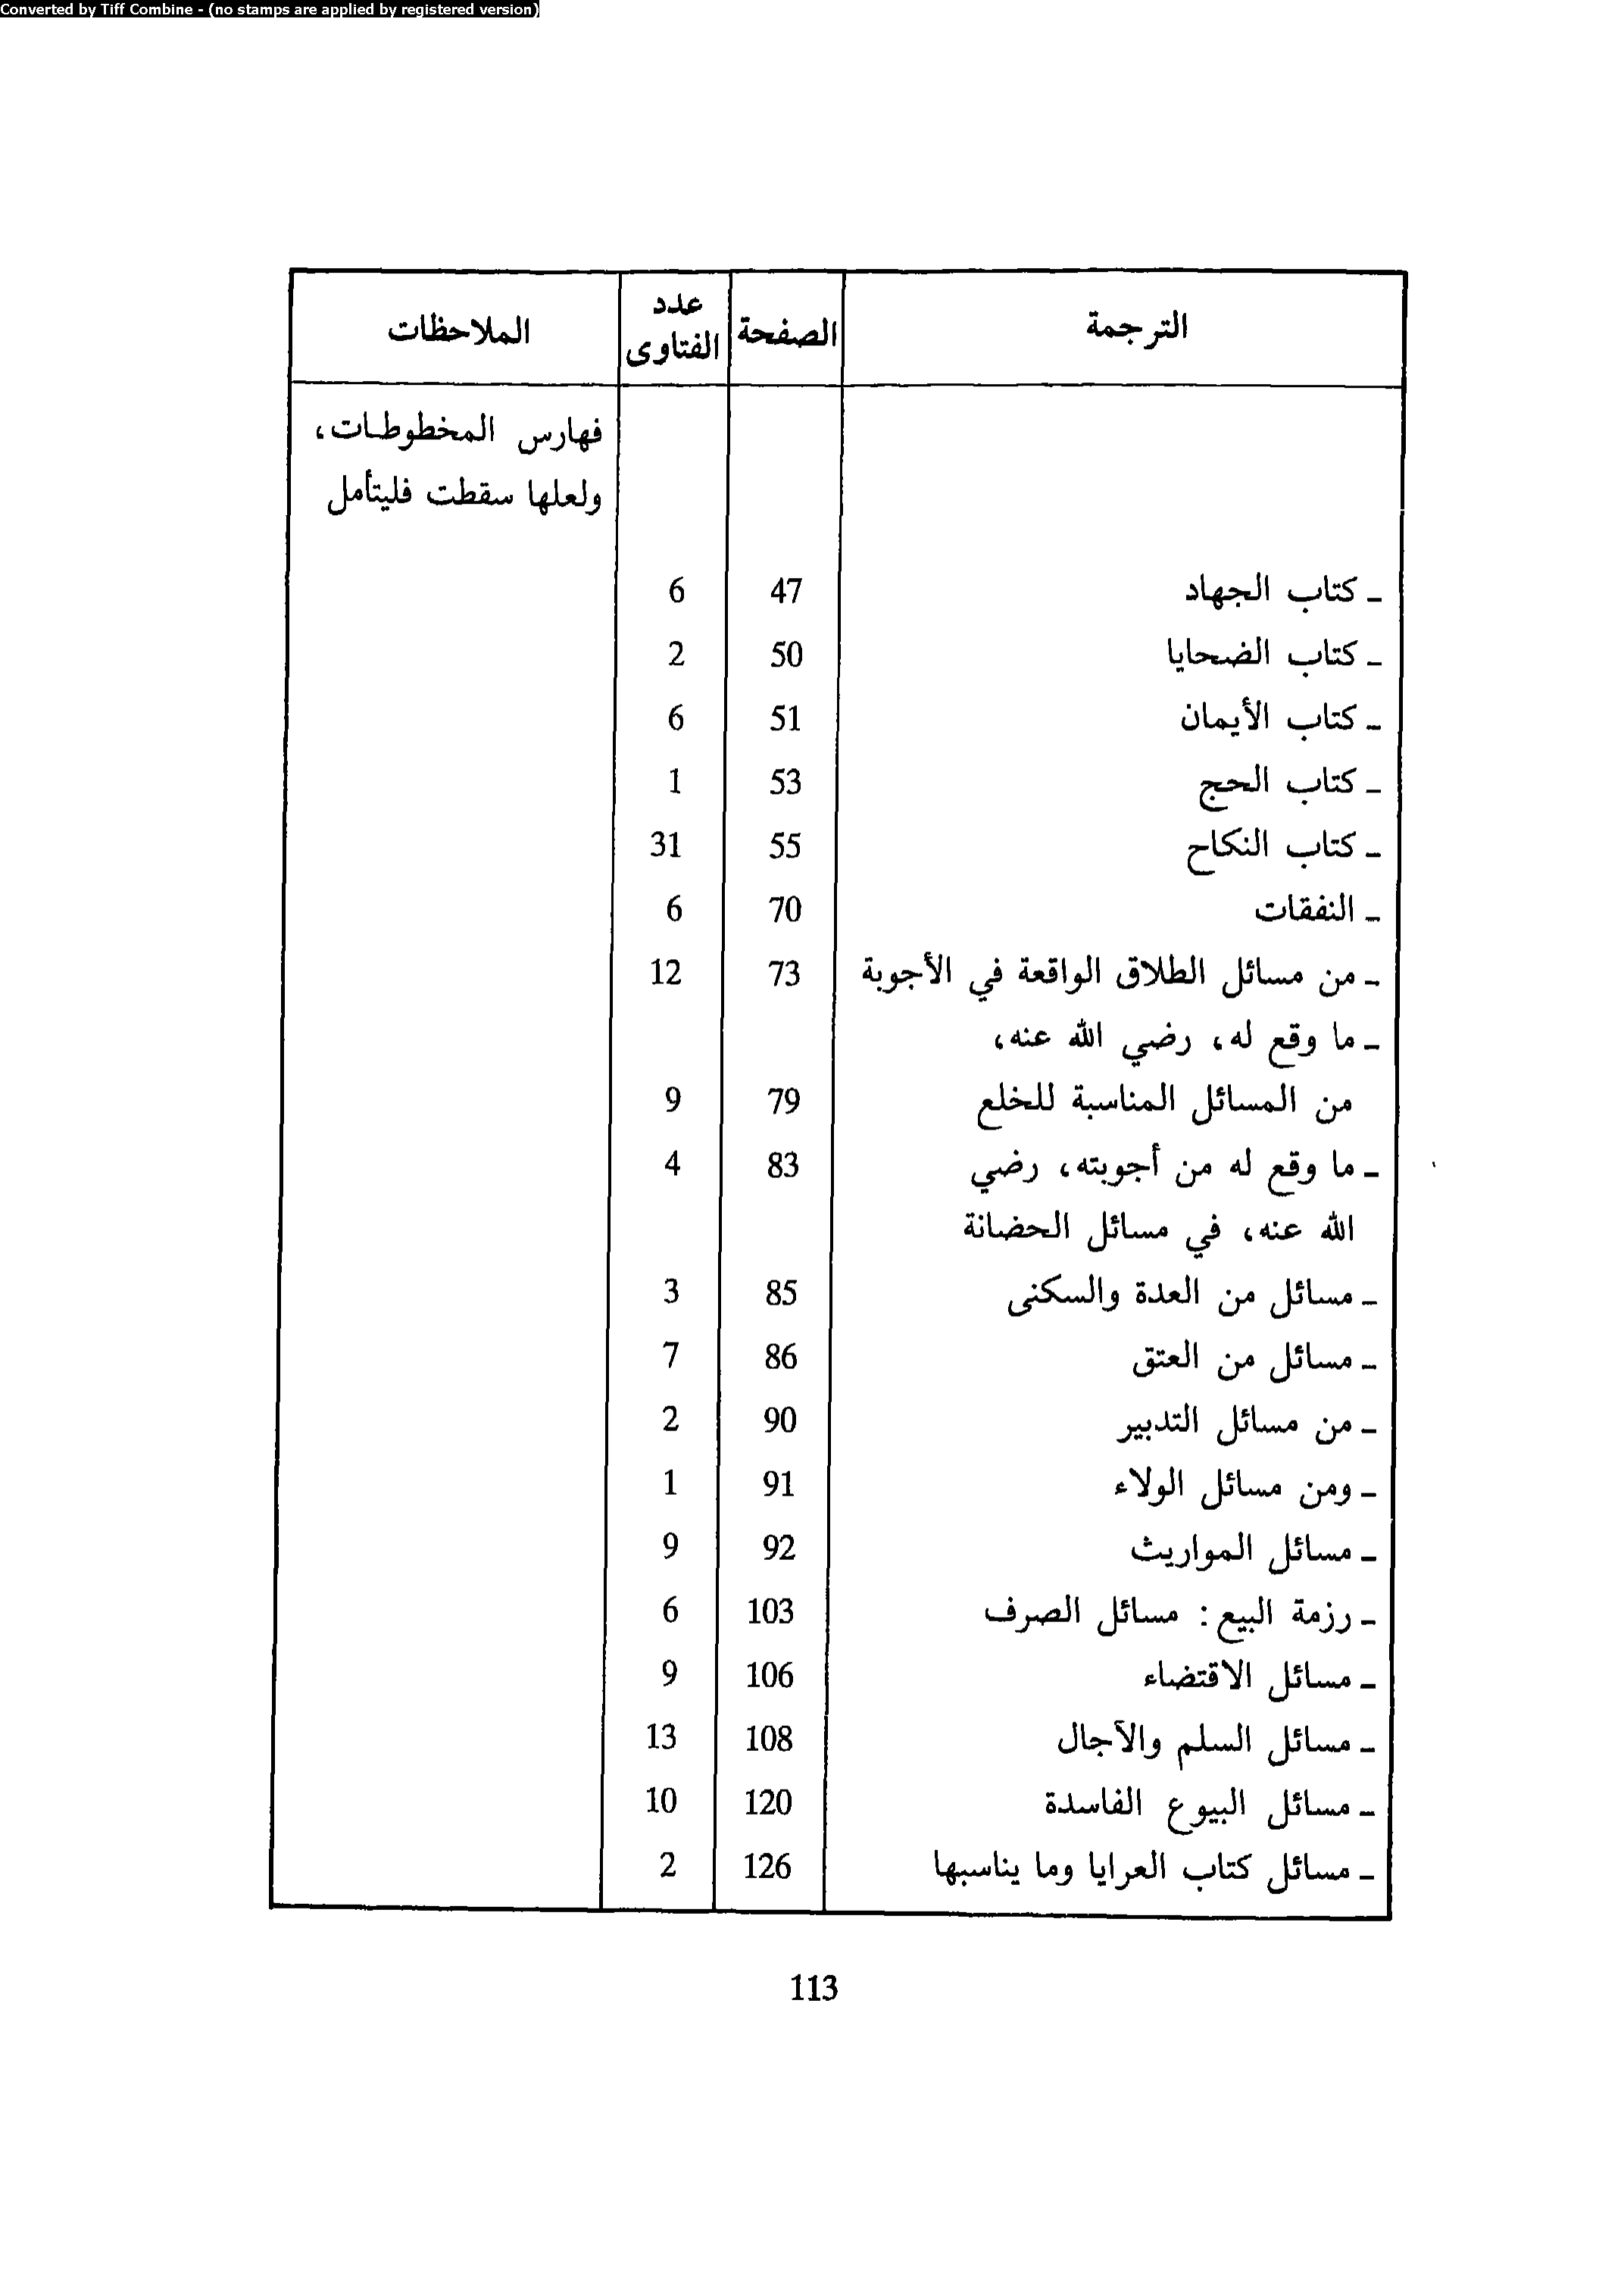 Converted by Tiff Combine - (no stamps are applied by registered version)
الترجمة الصفحة عدد الفتاوى الملاحظات
فهارس المخطوطات،
ولعلها سقطت فليتأمل
- كتاب الجهاد 47 6
- كتاب الضحايا 50 2
- كتاب الأيمان 51 6
- كتاب الحج 53 1
- كتاب النكاح 55 31
- النفقات 70 6
- من مسائل الطلاق الواقعة في الأجوبة 73 12
- ما وقع له، رضي الله عنه،
من المسائل المناسبة للخلع 79 9
- ما وقع له من أجوبته، رضي 83 4
الله عنه، في مسائل الحضانة
- مسائل من العدة والسكنى 85 3
- مسائل من العتق 86 7
- من مسائل التدبير 90 2
- ومن مسائل الولاء 91 1
- مسائل المواريث 92 9
- رزمة البيع : مسائل الصرف 103 6
- مسائل الاقتضاء 106 9
- مسائل السلم والآجال 108 13
- مسائل البيوع الفاسدة 120 10
- مسائل كتاب العرايا وما يناسبها 126 2
113